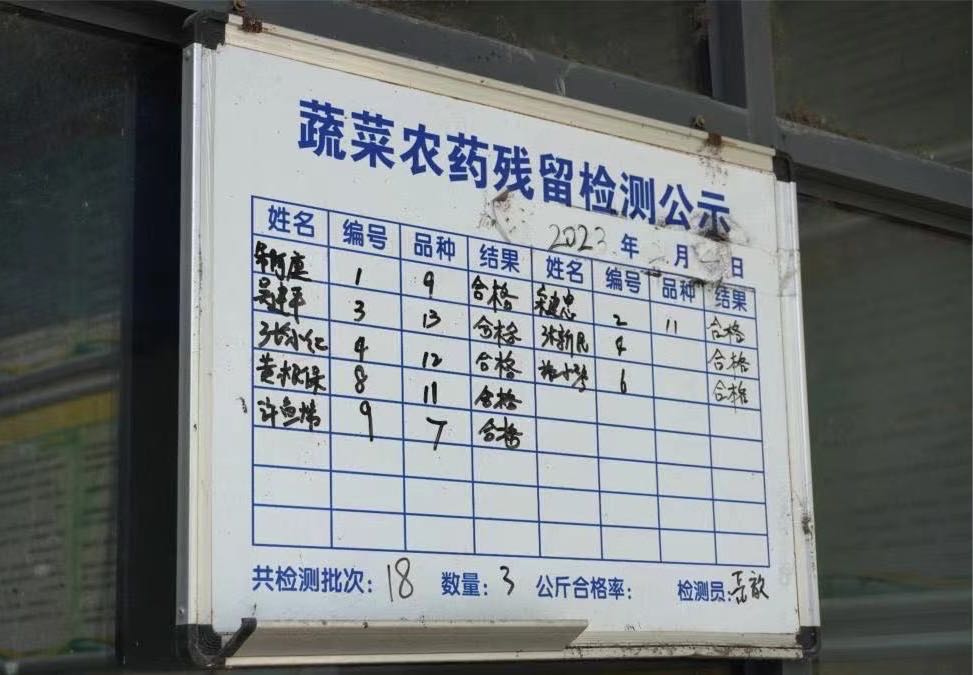 蔬菜农药残留检测公示
2023 年 月 日
姓名 编号 品种 结果 姓名 编号 品种 结果
1 9 合格 宋建忠 2 11 合格
吴建平 3 13 合格 张新民 4 合格
张小仁 4 12 合格 小 6 合格
黄 保 8 11 合格
许 9 7 合格
共检测批次：18 数量：3 公斤合格率： 检测员：